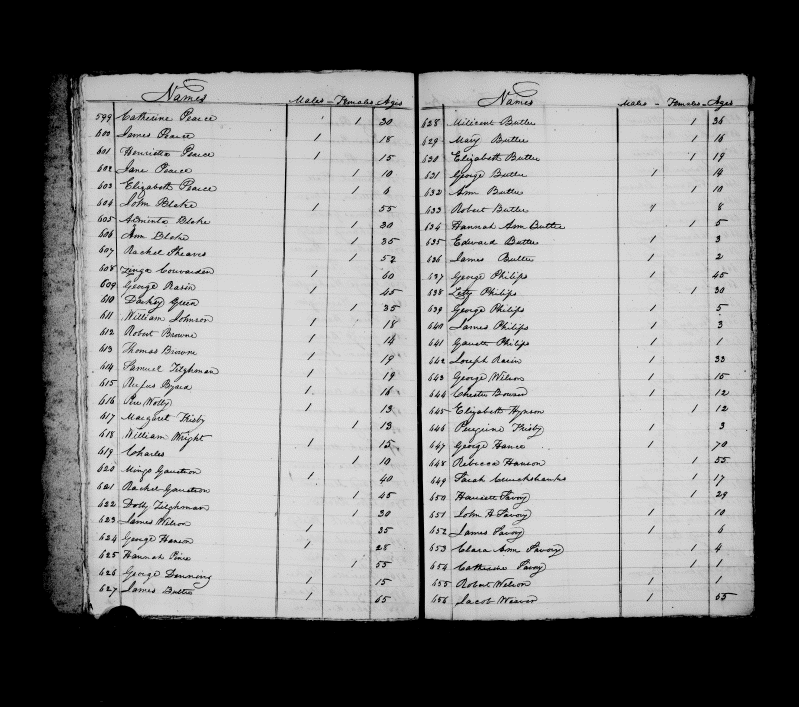 Names Males - Females - Ages
599 Catherine Pearce 1 30
600 James Pearce 1 18
601 Henrietta Pearce 1 15
602 Jane Pearce 1 10
603 Elizabeth Pearce 1 6
604 John Blake 1 55
605 Blake 1 30
606 Ann Blake 1 35
607 Rachel Sheaves 1 52
608 1 60
609 George Rasin 1 45
610 Darkey Green 1 35
611 William Johnson 1 18
612 Robert Browne 1 14
613 Thomas Browne 1 19
614 Samuel Tilghman 1 19
615 Rufus Byard 1 16
616 Pere Wolly 1 13
617 Margaret Frisby 1 13
618 William Wright 1 15
619 Charles 1 10
620 Mingo Gauston 1 40
621 Rachel Gauston 1 45
622 Dolly Tilghman 1 30
623 James Wilson 1 35
624 George Hanson 1 28
625 Hannah Price 1 55
626 George Dunning 1 15
627 James Butler 1 65
Names Males - Females - Ages
628 Milicent Butler 1 36
629 Mary Butler 1 16
630 Elizabeth Butler 1 19
631 George Butler 1 14
632 Ann Butler 1 10
633 Robert Butler 1 8
634 Hannah Ann Butler 1 5
635 Edward Butler 1 3
636 James Butler 1 2
637 George Philips 1 45
638 Letty Philips 1 30
639 George Philips 1 5
640 James Philips 1 3
641 Garrett Philips 1 1
642 Joseph Rasin 1 33
643 George Wilson 1 15
644 Chester Bowser 1 12
645 Elizabeth Hynson 1 12
646 Peregrine Frisby 1 3
647 George Hance 1 70
648 Rebecca Hanson 1 55
649 Sarah Cruickshanks 1 17
650 Harriett Savoy 1 29
651 John H Savoy 1 10
652 James Savoy 1 6
653 Clara Ann Savoy 1 4
654 Catherine Savoy 1 1
655 Robert Wilson 1 1
656 Jacob Weaver 1 65